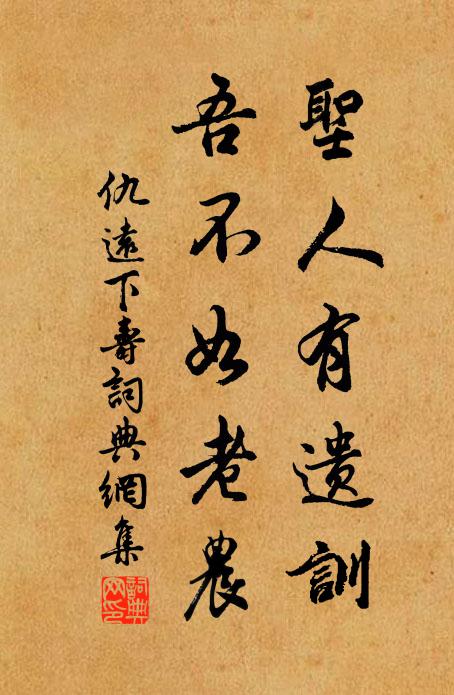 聖人有遺訓
吾不如老農
仇遠下壽詞典網集
詞典网印